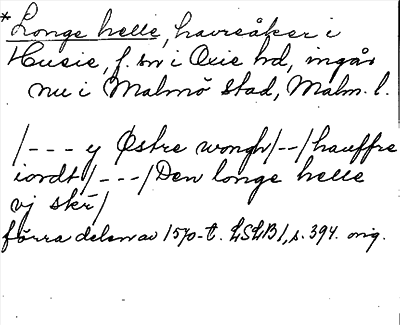 *Longe helle, havreåker i
Husie, f. sn i Oxie hd, ingår
nu i Malmö stad, Malm. l.
/--- y Østre wongh/--/hauffre
iordt/---/Den longe helle
vj skr/
förra delen av 1570-t. LSLB1, s. 394. orig.